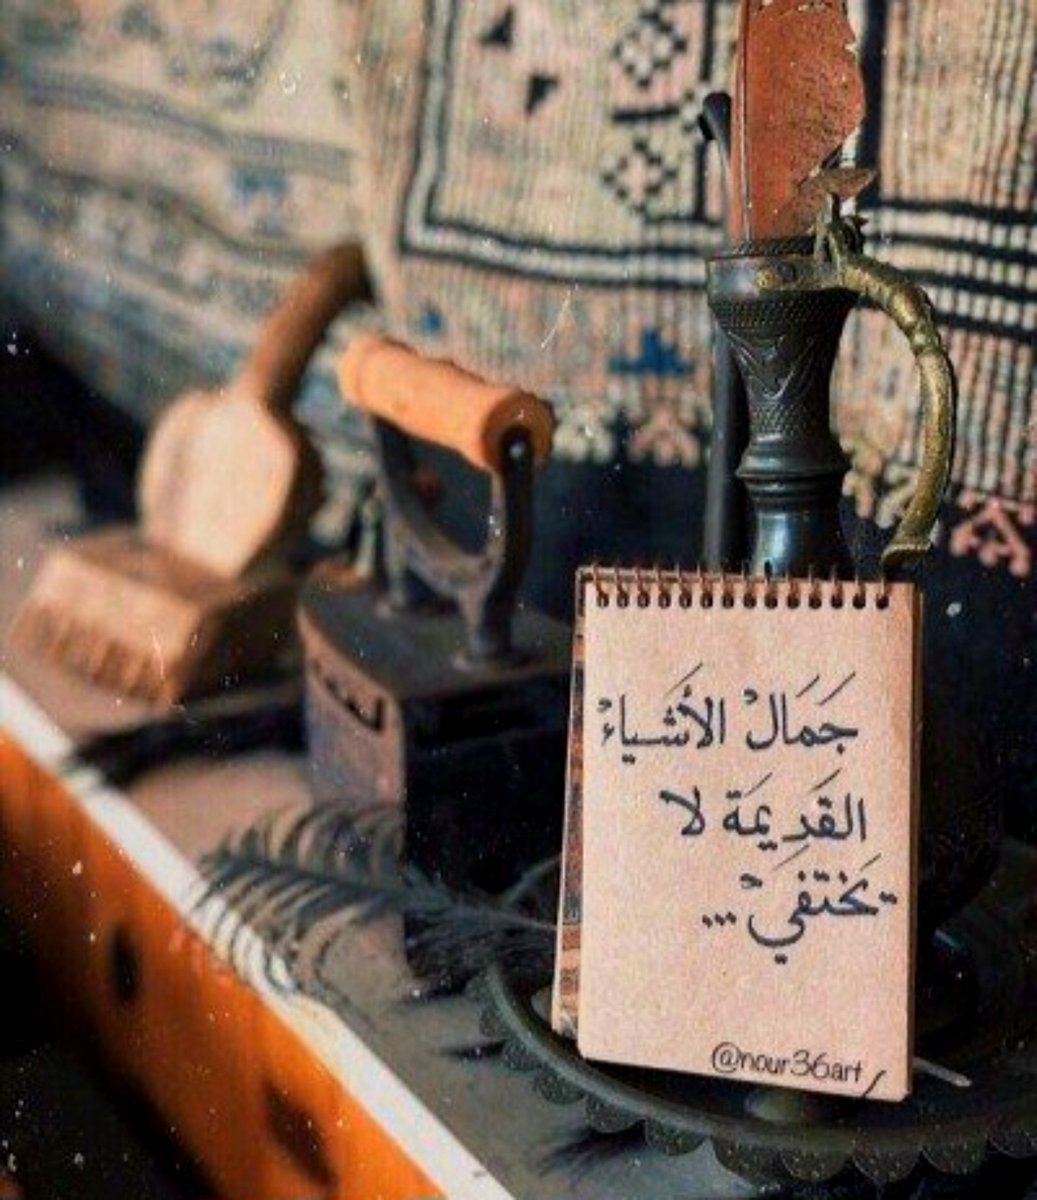 جَمَالْ الأَشياءْ
القَدِيمَة لا
يَختَفِيْ...
@nour36art